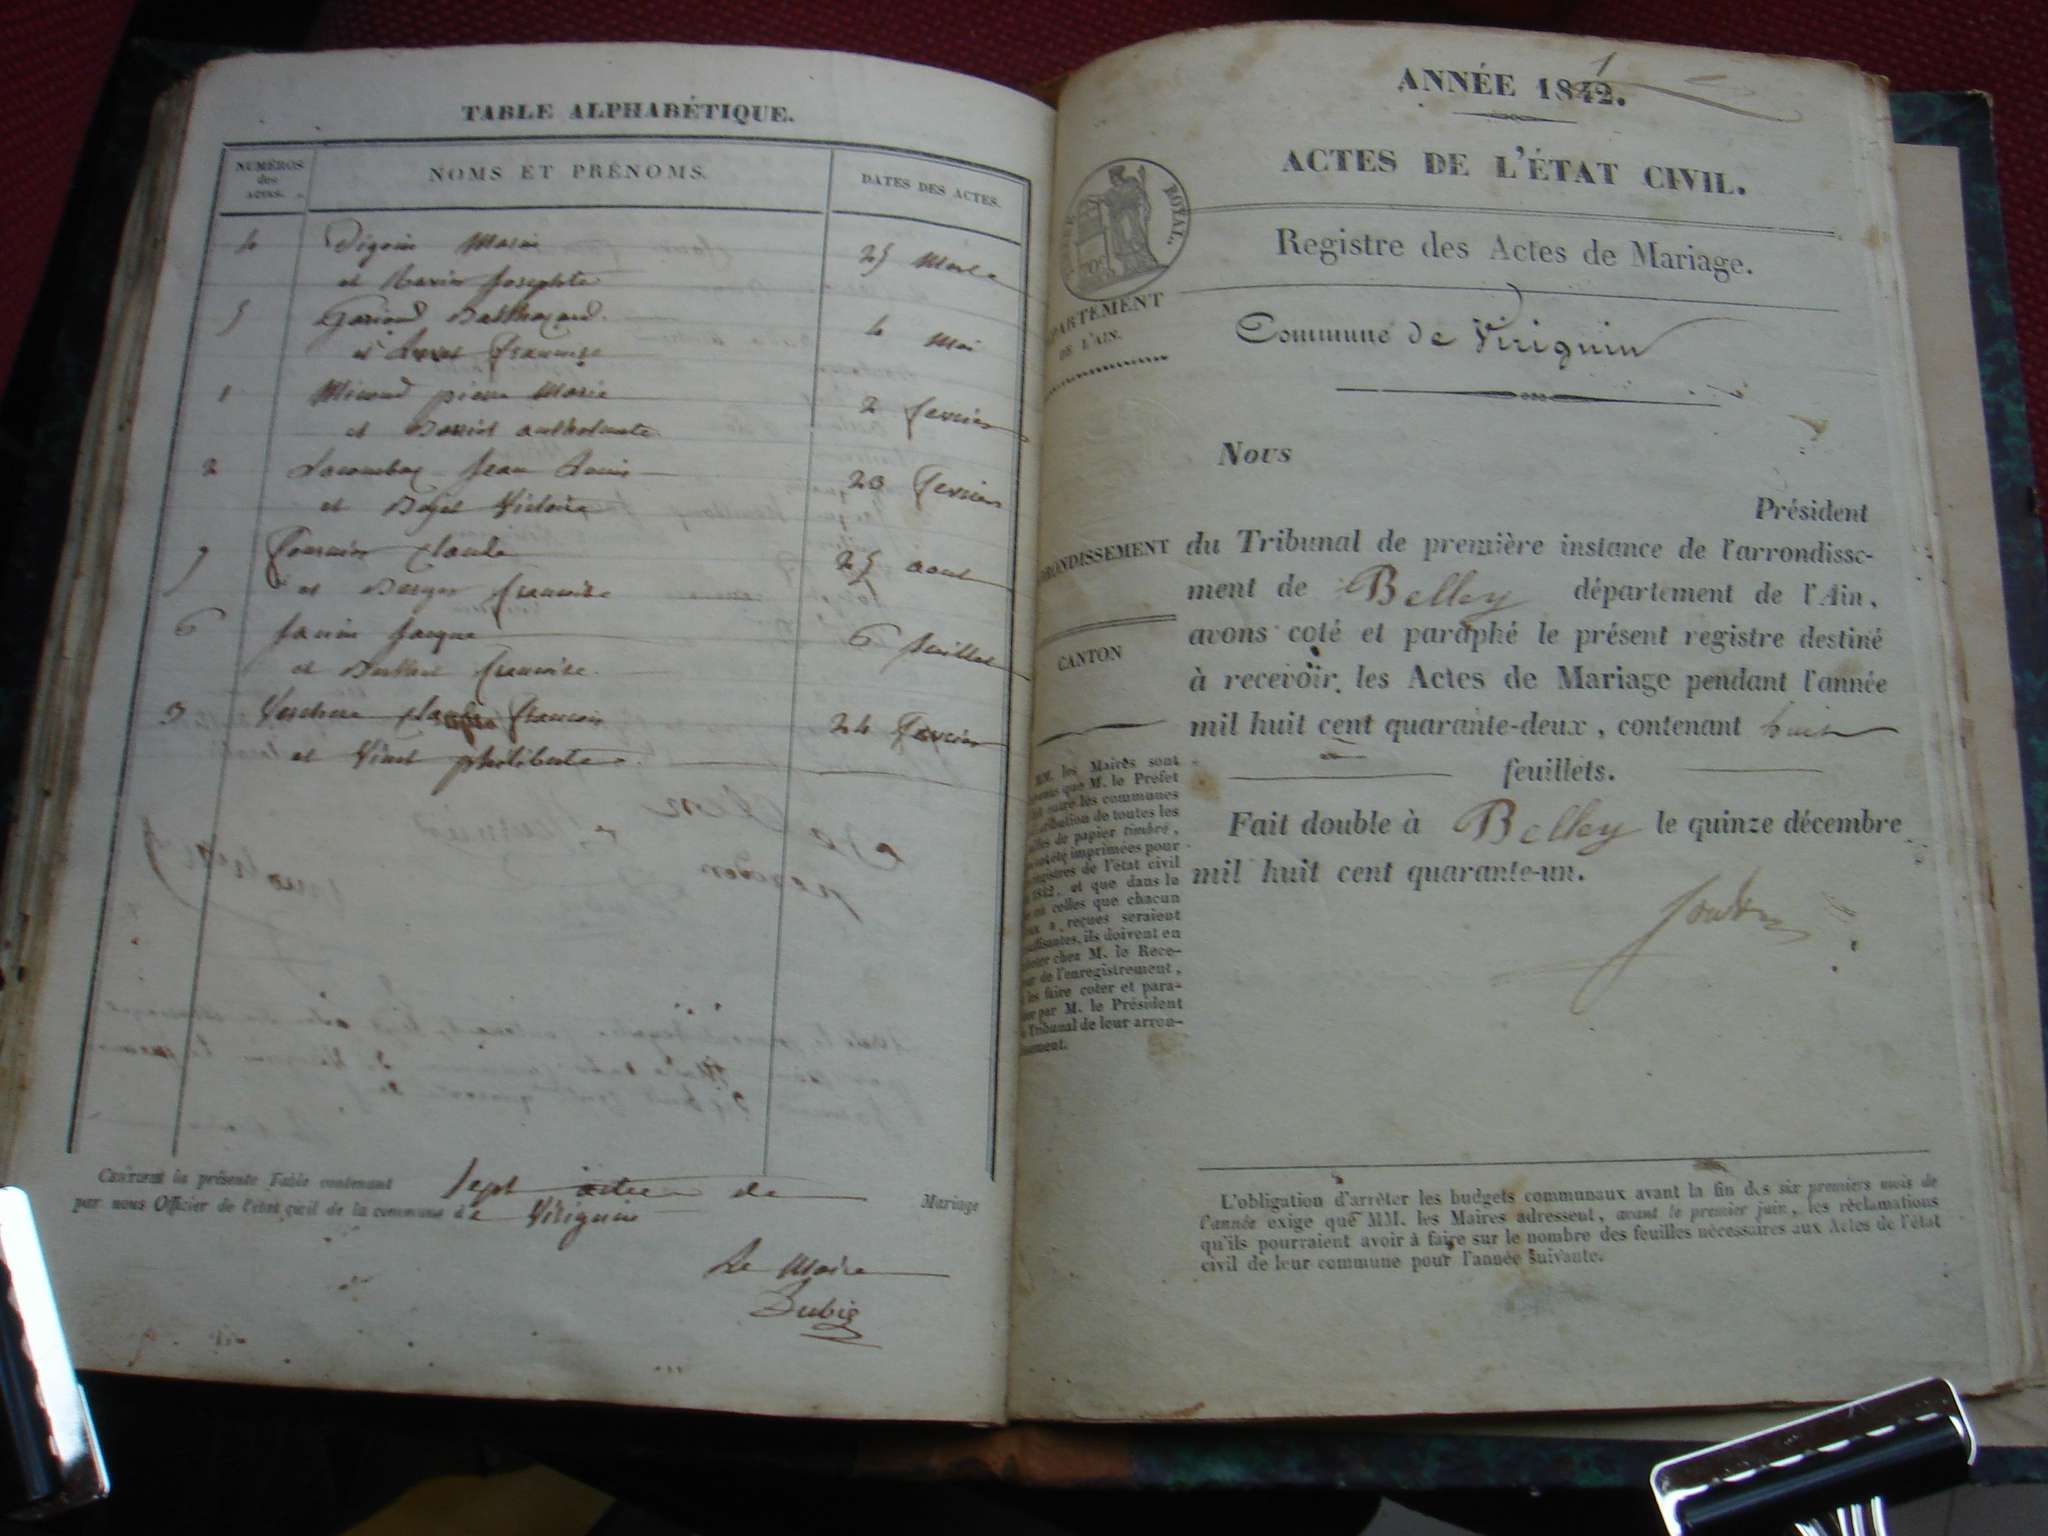 TABLE ALPHABÉTIQUE.
NUMÉROS des ACTES.
NOMS ET PRÉNOMS.
DATES DES ACTES.
4 Marin 25 Mars
et Marin Josephte
5 Balthazard 4 Mai
et francoise
1 Micoud pierre Marie 2 fevrier
et anthelmette
2 Jean Louis 20 fevrier
et Victoire
7 Fournier Claude 25 aout
et Berger francoise
6 Janin Jacque 6 Juillet
et francoise
3 Verchere francois 24 fevrier
et Vinet philiberte
CERTIFIÉ la présente Table contenant sept actes de Mariage
par nous Officier de l'état civil de la commune de Virignin
Le Maire
Dubie
ANNÉE 1842.
1
ACTES DE L'ÉTAT CIVIL.
ROYAL.
Registre des Actes de Mariage.
DE L'AIN.
Commune de Virignin
Nous
Président
du Tribunal de première instance de l'arrondisse-
ment de Belley département de l'Ain,
avons coté et paraphé le présent registre destiné
à recevoir les Actes de Mariage pendant l'année
mil huit cent quarante-deux, contenant huit
feuillets.
Fait double à Belley le quinze décembre
mil huit cent quarante-un.
CANTON
MM. les Maires sont
que M. le Préfet
les communes
de toutes les
de papier timbré,
été imprimées pour
registres de l'état civil
1842, et que dans le
celles que chacun
a reçues seraient
ils doivent en
chez M. le Rece-
de l'enregistrement,
les faire coter et para-
par M. le Président
Tribunal de leur arron-
L'obligation d'arrêter les budgets communaux avant la fin des six premiers mois de
l'année exige que MM. les Maires adressent, avant le premier juin, les réclamations
qu'ils pourraient avoir à faire sur le nombre des feuilles nécessaires aux Actes de l'état
civil de leur commune pour l'année suivante.